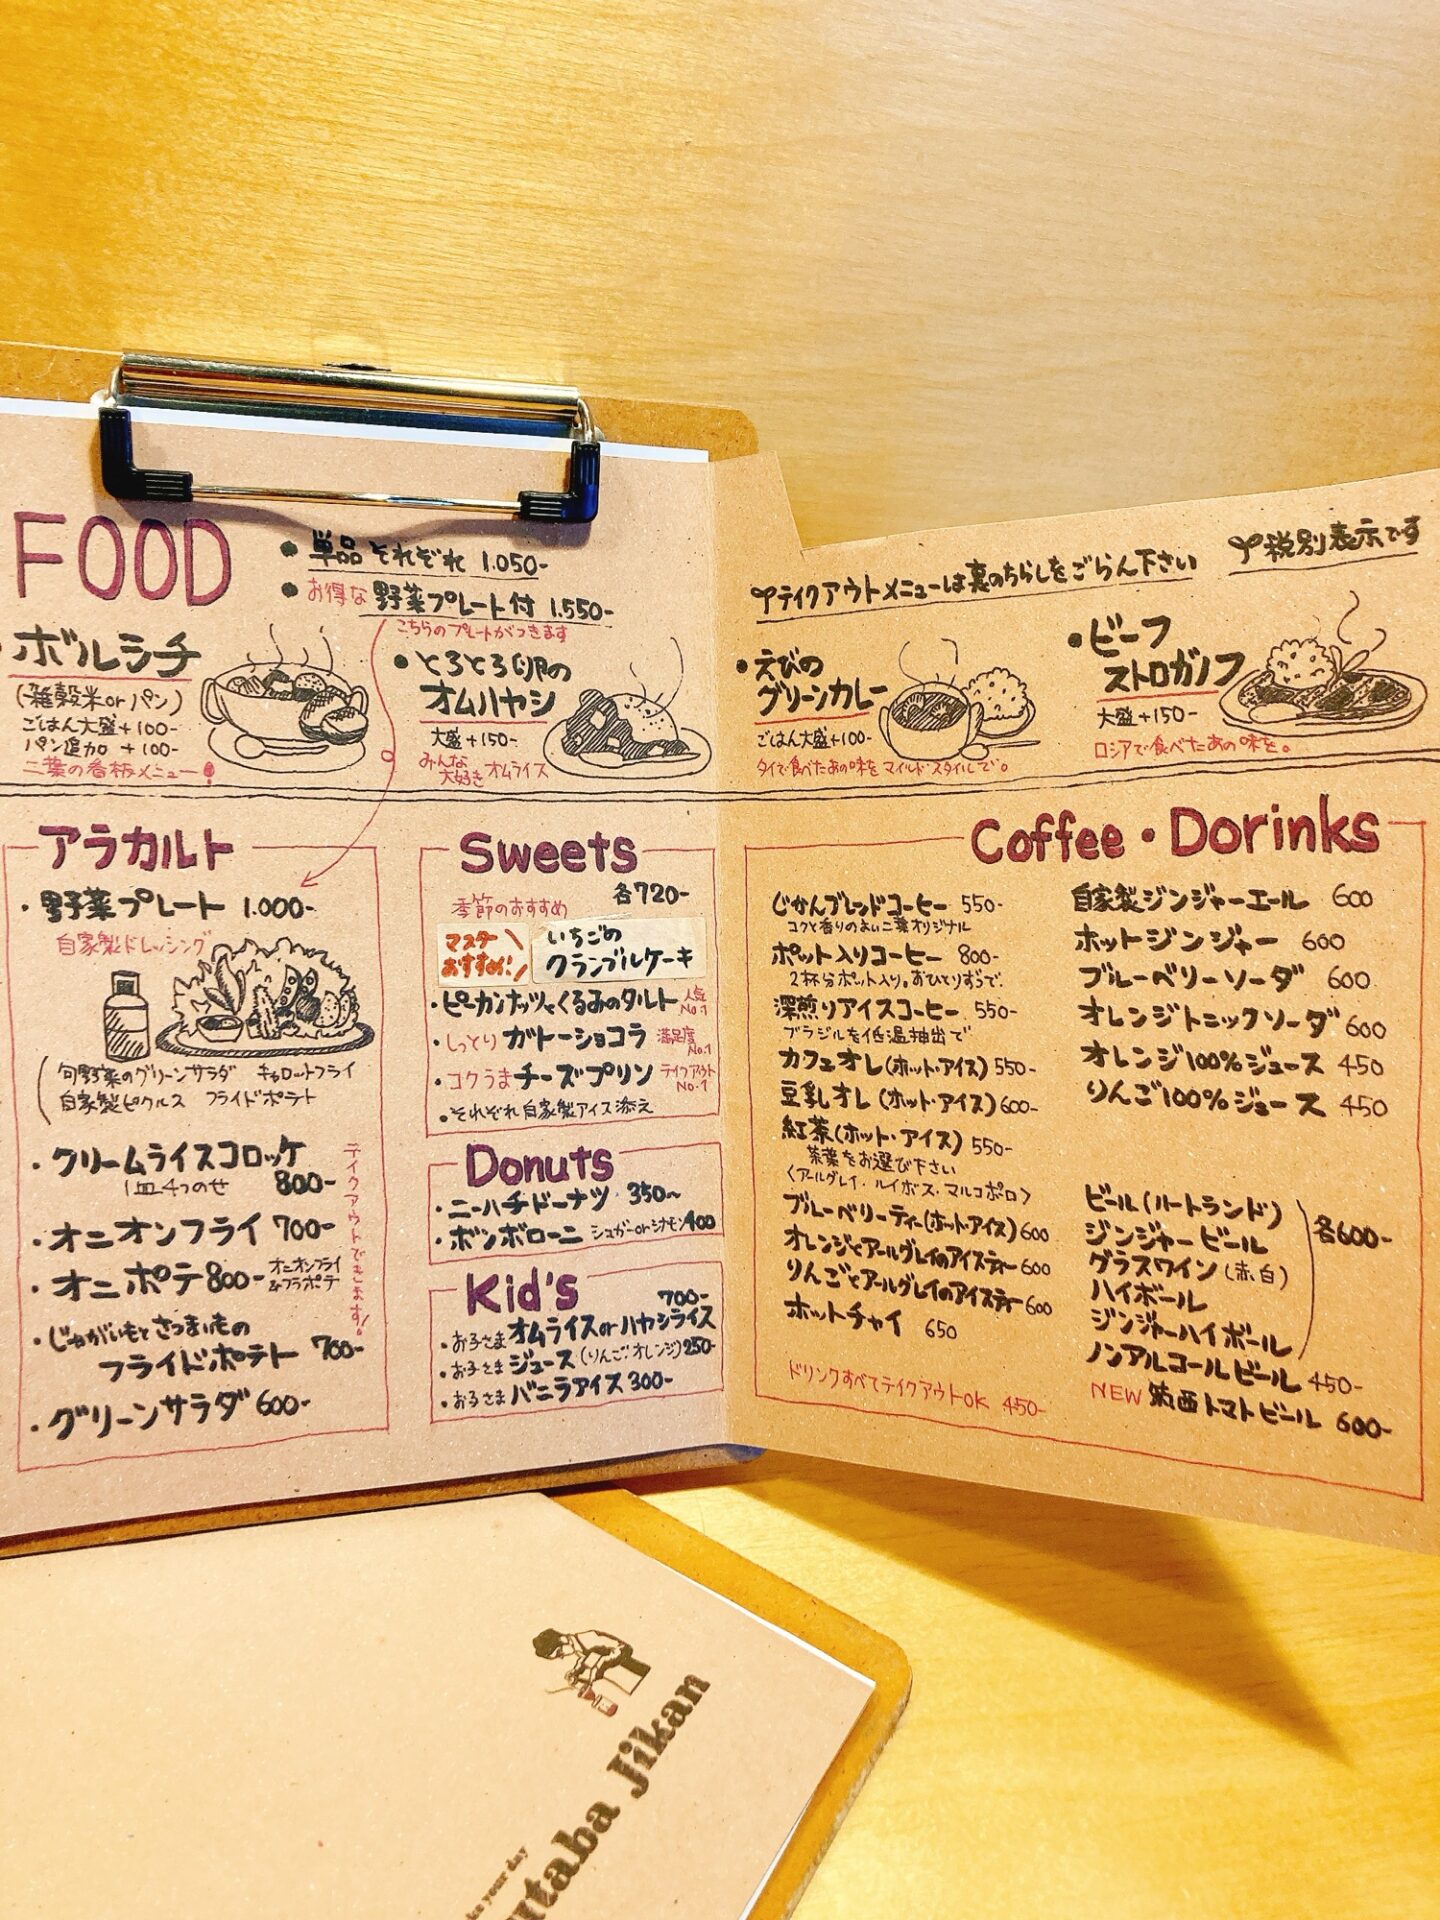 FOOD
● 単品 それぞれ 1.050-
● お得な 野菜プレート付 1.550-
こちらのプレートがつきます
ボルシチ
(雑穀米orパン)
ごはん大盛+100-
パン追加 +100-
二葉の看板メニュー!
● とろとろ卵の
オムハヤシ
大盛+150-
みんな大好き オムライス
テイクアウトメニューは裏のちらしをごらん下さい
税別表示です
● えびの
グリーンカレー
ごはん大盛+100-
タイで食べたあの味をマイルド・スタイルで。
● ビーフ
ストロガノフ
大盛+150-
ロシアで食べたあの味を。
アラカルト
・野菜プレート 1.000-
自家製ドレッシング
旬野菜のグリーンサラダ キャロットフライ
自家製ピクルス フライドポテト
・クリームライスコロッケ
1皿4つのせ 800-
・オニオンフライ 700-
・オニポテ 800- オニオンフライ&フラポテ
・じゃがいもとさつまいもの
フライドポテト 700-
・グリーンサラダ 600-
テイクアウトできます!
Sweets
各720-
季節のおすすめ
マスターおすすめ!
いちごの
クランブルケーキ
・ピーカンナッツとくるみのタルト 人気No.1
・しっとり ガトーショコラ 満足度No.1
・コクうま チーズプリン テイクアウトNo.1
●それぞれ自家製アイス添え
Donuts
・ニーハチドーナツ 350~
・ボンボローニ シュガーorシナモン 400
Kid's
700-
・お子さま オムライスorハヤシライス
・お子さま ジュース (りんご・オレンジ) 250-
・お子さま バニラアイス 300-
Coffee・Dorinks
じかんブレンドコーヒー 550-
コクと香りのよい二葉オリジナル
ポット入りコーヒー 800-
2杯分ポット入り。おひとりずつで。
深煎りアイスコーヒー 550-
ブラジルを低温抽出で
カフェオレ(ホット・アイス) 550-
豆乳オレ (ホット・アイス) 600-
紅茶(ホット・アイス) 550-
茶葉をお選び下さい
〈アールグレイ・ルイボス・マルコポーロ〉
ブルーベリーティー(ホット・アイス) 600
オレンジとアールグレイのアイスティー 600
りんごとアールグレイのアイスティー 600
ホットチャイ 650
ドリンクすべてテイクアウトOK 450-
自家製ジンジャーエール 600
ホットジンジャー 600
ブルーベリーソーダ 600
オレンジトニックソーダ 600
オレンジ100%ジュース 450
りんご100%ジュース 450
ビール(ハートランド)
ジンジャービール
グラスワイン(赤、白)
ハイボール
ジンジャーハイボール
各600-
ノンアルコールビール 450-
NEW 筑西トマトビール 600-
your day
utaba Jikan